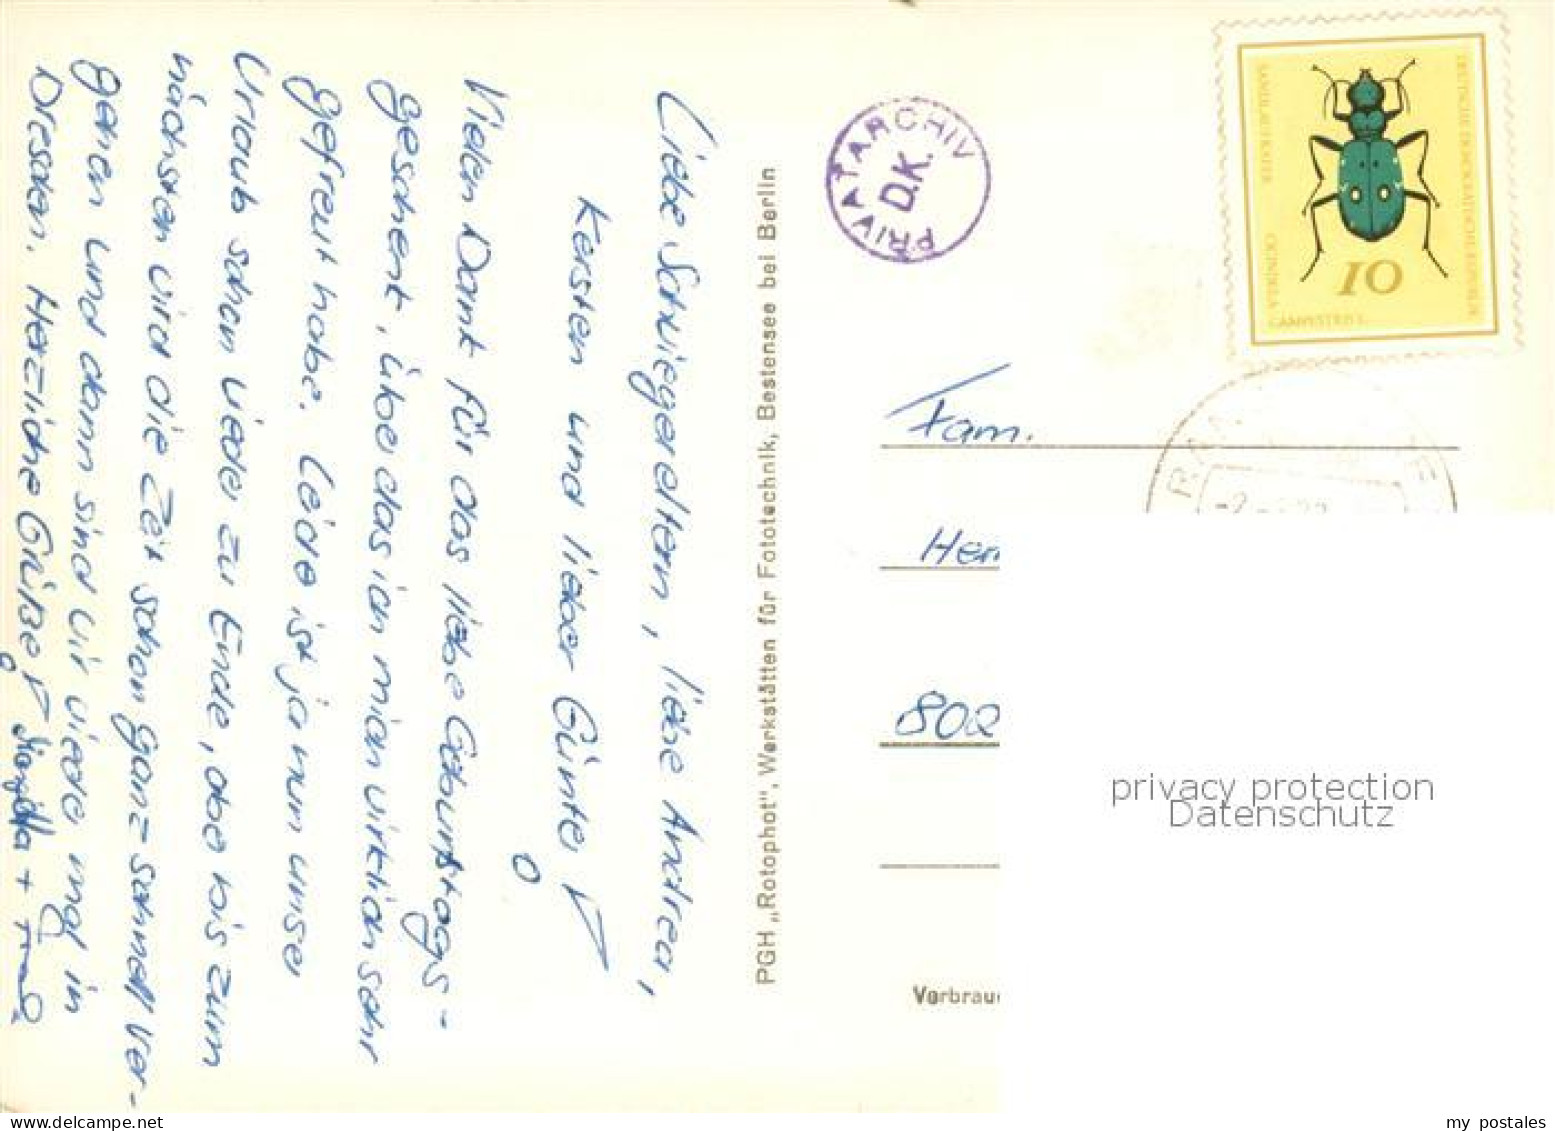 Liebe Schwiegereltern, liebe Andrea,
Kersten und lieber Günter!
Vielen Dank für das liebe Geburtstags-
geschenk, über das ich mich wirklich sehr
gefreut habe. Leider ist ja nun unser
Urlaub schon wieder zu Ende, aber bis zum
nächsten wird die Zeit schon ganz schnell ver-
gehen und dann sind wir wieder mal in
Dresden. Herzliche Grüße!
PGH „Rotophot", Werkstätten für Fototechnik, Bestensee bei Berlin
PRIVATARCHIV
D.K.
DEUTSCHE DEMOKRATISCHE REPUBLIK
SANDLAUFKÄFER
CICINDELA
CAMPESTRIS L.
10
Fam.
Her
802
Verbrau
privacy protection
Datenschutz
my postales